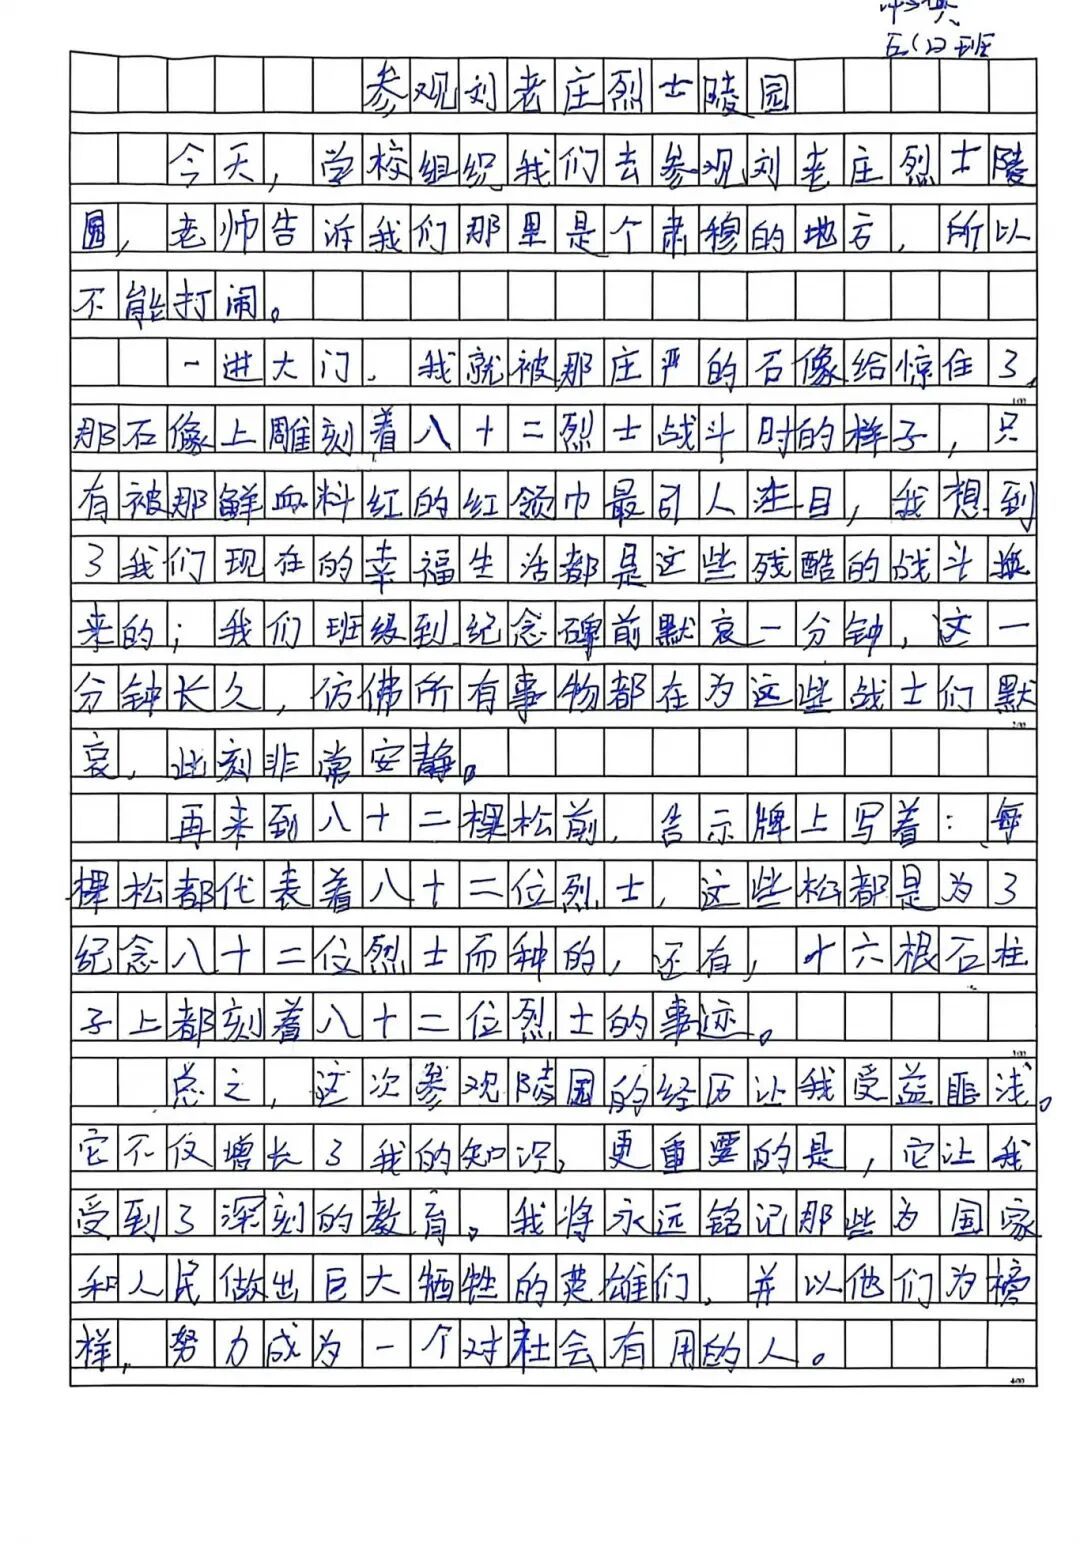 五(2)班
参观刘老庄烈士陵园
今天,学校组织我们去参观刘老庄烈士陵
园,老师告诉我们那里是个肃穆的地方,所以
不能打闹。
一进大门,我就被那庄严的石像给惊住了,
那石像上雕刻着八十二烈士战斗时的样子,只
有被那鲜血料红的红领巾最引人注目,我想到
了我们现在的幸福生活都是这些残酷的战斗换
来的;我们班级到纪念碑前默哀一分钟,这一
分钟长久,仿佛所有事物都在为这些战士们默
哀,此刻非常安静。
再来到八十二棵松前,告示牌上写着:每
棵松都代表着八十二位烈士,这些松都是为了
纪念八十二位烈士而种的,还有,十六根石柱
子上都刻着八十二位烈士的事迹。
总之,这次参观陵园的经历让我受益匪浅。
它不仅增长了我的知识,更重要的是,它让我
受到了深刻的教育。我将永远铭记那些为国家
和人民做出巨大牺牲的英雄们,并以他们为榜
样,努力成为一个对社会有用的人。